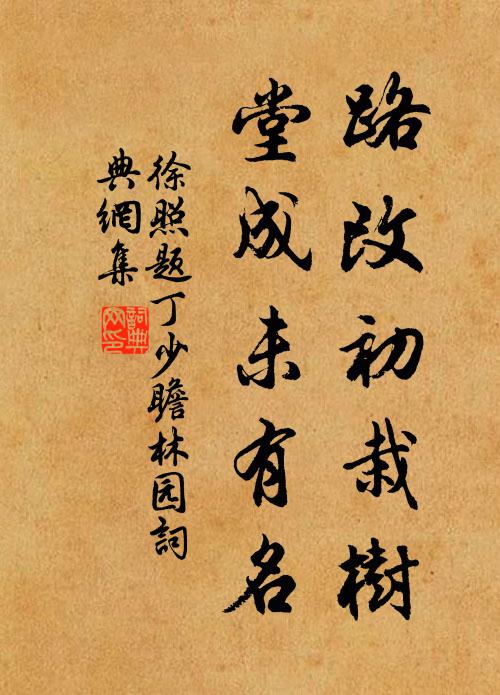 路改初栽樹
堂成未有名
徐照題丁少瞻林园詞
典網集
詞典
网印